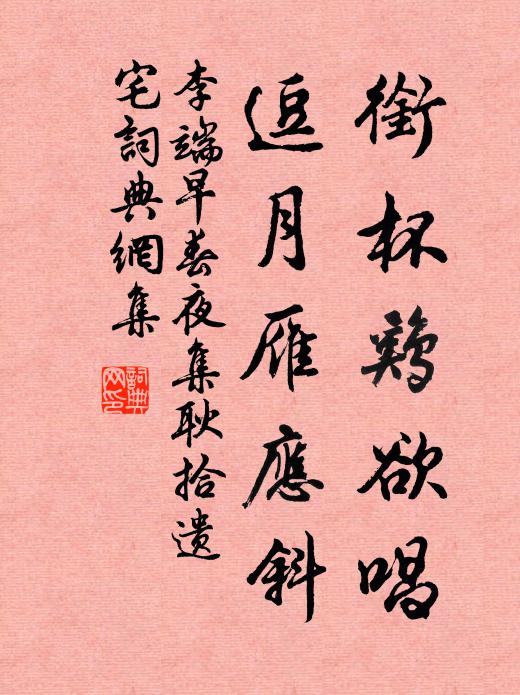 銜杯鷄欲唱
逗月雁應斜
李端早春夜集耿拾遺
宅詞典網集
詞典
网印